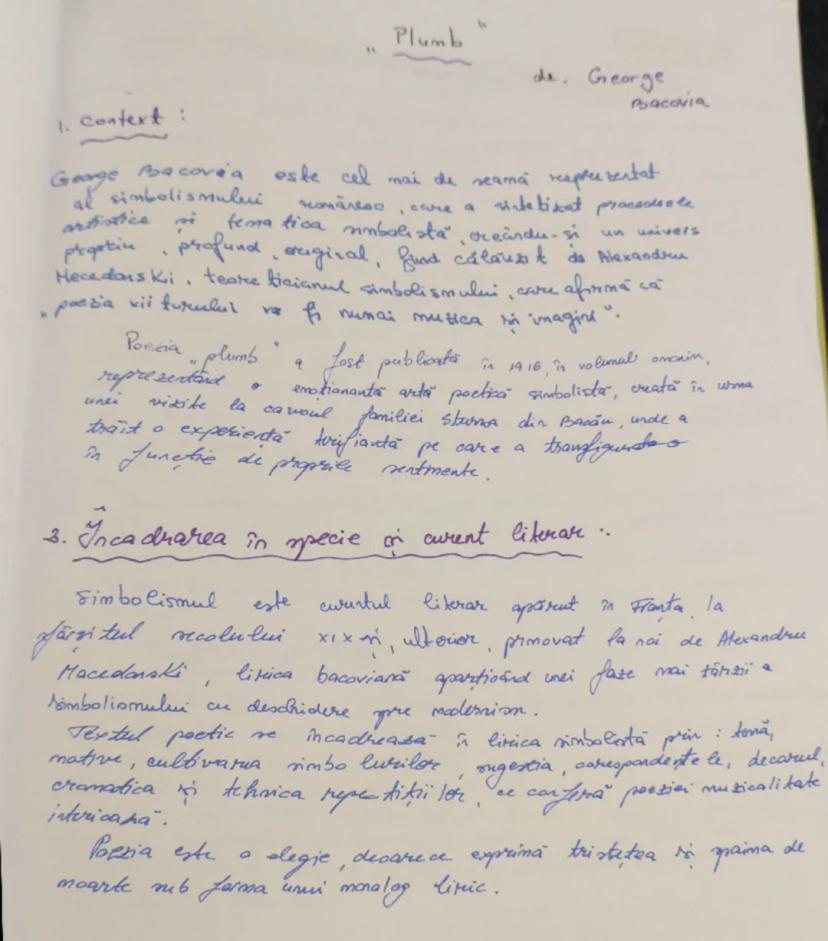 „ Plumb "
de. George
Bacovia
1. Context :
George Bacovia este cel mai de seamă reprezentat
al simbolismului românesc, care a sintetizat procedeele
artistice și tematica simbolistă, creându-și un univers
propriu, profund, original, fiind călăuzit de Alexandru
Macedonski, teoreticianul simbolismului, care afirmă că
„poezia viitorului va fi numai muzica și imagine".
Poezia „plumb" a fost publicată în 1916, în volumul omonim,
reprezentând o emoționantă artă poetică simbolistă, creată în urma
unei vizite la cavoul familiei Sturza din Bacău, unde a
trăit o experiență terifiantă pe care a transfigurat-o
în funcție de propriile sentimente.
3. Încadrarea în specie și curent literar :
Simbolismul este curentul literar apărut în Franța, la
sfârșitul secolului XIX și, ulterior, prmovat la noi de Alexandru
Macedonski, lirica bacoviană aparținând unei faze mai târzii a
simbolismului cu deschidere spre modernism.
Textul poetic se încadrează în lirica simbolistă prin : temă,
motive, cultivarea simbolurilor, sugestia, corespondențele, decorul,
cromatica și tehnica repetițiilor, ce conferă poeziei muzicalitate
interioară.
Poezia este o elegie, deoarece exprimă tristețea și spaima de
moarte sub forma unui monolog liric.